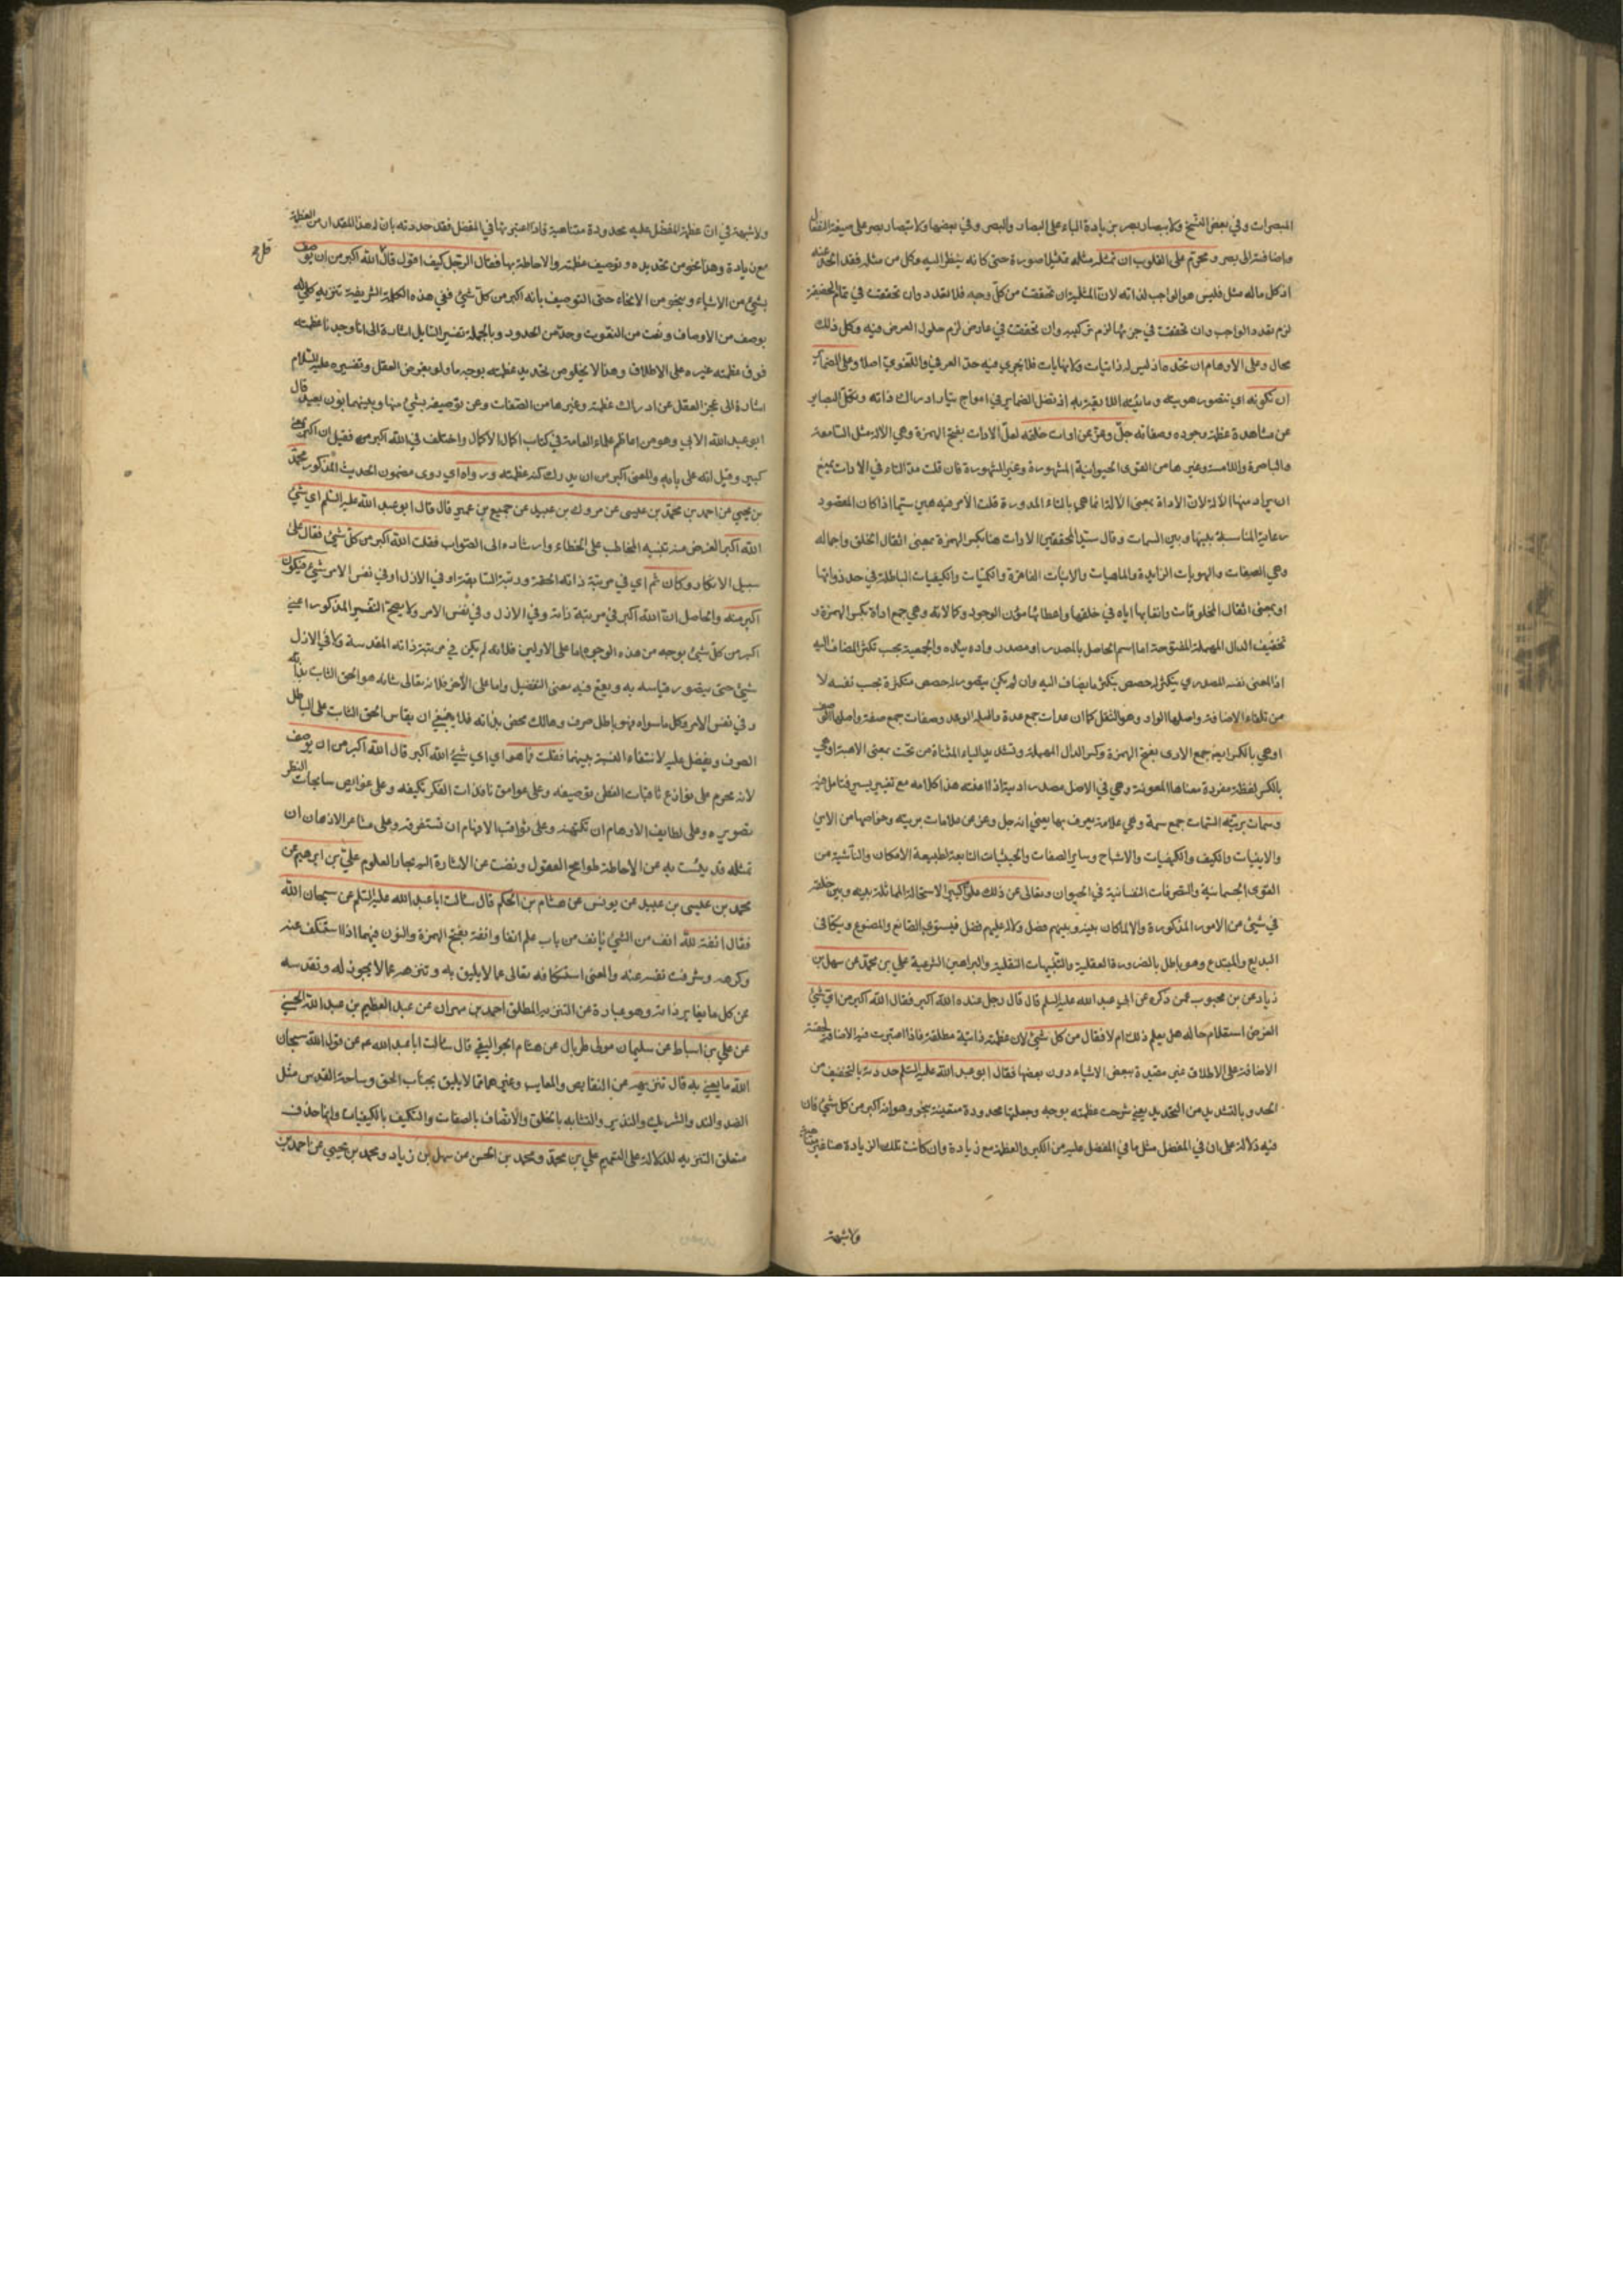 المبصرات وفي بعض النسخ ولا بصار بصر بزيادة الباء على البصار والبصر وفي بعضها ولا تبصار بصر على صيغة
واضافته الى بصر ومحرم على القلوب ان تمثله مثله تمثيلا صورة حتى كانه ينظر اليه وكل من مثله فقد الحد عنه
اذ كل ماله مثل فليس هو الواجب لذاته لان المثلية ان تحققت من كل وجه فلا تعدد وان تحققت في تمام الحقيقة
لزم تعدد الواجب وان تحققت في جزئها لزم تركيبه وان تحققت في عارض لزم حلول العرض فيه وكل ذلك
محال وعلى الاوهام ان تحده اذ ليس له ذاتيات ولا نهايات فلا يجري فيه حد العرفي واللغوي اصلا وعلى الضمائر
ان تكونه اي تتصور هويته وماهيته اللايقة به اذ تضل الضماير في امواج تيار ادراك ذاته وتكل البصاير
عن مشاهدة عظمة وجوده وصفاته جل وعز عن ادات خلقه لعل الادات بفتح الهمزة وهي الالة مثل السامعة
والباصرة واللامسة وغيرها من القوى الحيوانية المشهورة وغير المشهورة فان قلت مد التاء في الادات يمنع
ان يراد منها الالة لان الاداة بمعنى الالة انما هي بالتاء المدورة قلت الامر فيه هين سيما اذا كان المقصود
رعاية المناسبة بينها وبين السمات وقال سيد المحققين الادات هنا بكسر الهمزة بمعنى اثقال الخلق واحماله
وهي الصفات والهويات الزايدة والماهيات والانيات الفاقرة والكميات والكيفيات الباطلة في حد ذواتها
او بمعنى اثقال المخلوقات واتقانها اياه في خلقها واعطائها مؤن الوجود وكمالاته وهي جمع اداة بكسر الهمزة و
تخفيف الدال المهملة المفتوحة اما اسم الحاصل بالمصدر او مصدر واده يئده والجمعية بحسب تكثر المضاف اليه
اذ المعنى نفسه المصدري يتكثر له حصص بتكثر ما يضاف اليه وان لم يكن يتصور له حصص متكثرة بحسب نفسه لا
من تلقاء الاضافة واصلها الواد وهو الثقل كما ان عدات جمع عدة واصله الوعد وصفات جمع صفة واصلها الوصف
او هي بالكسر ايضا جمع الادى بفتح الهمزة وكسر الدال المهملة وتشديد الياء المثناة من تحت بمعنى الاهبة او هي
بالكسر لفظة مفردة معناها المعونة وهي في الاصل مصدر اديته اذا اعنته هذا كلامه مع تغيير يسير فتامل فيه
وسمات بريته السمات جمع سمة وهي علامة يعرف بها يعني انه جل وعز عن علامات بريته وخواصها من الاين
والاينيات والكيف والكيفيات والاشباح وساير الصفات والحيثيات التابعة لطبيعة الامكان والناشية من
القوى الجسمانية والتصرفات النفسانية في الحيوان وتعالى عن ذلك علوا كبيرا لاستحالة المماثلة بينه وبين خلقه
في شيئ من الامور المذكورة والا لما كان بينه وبينهم فضل ولا له عليهم فضل فيستوي الصانع والمصنوع ويتكافى
البدايع والمبتدع وهو باطل بالضرورة العقلية والتنبيهات النقلية والبراهين الشرعية علي بن محمد عن سهل بن
زياد عن بن محبوب عمن ذكره عن ابي عبد الله عليه السلم قال قال رجل عنده الله اكبر فقال الله اكبر من اي شيئ
الغرض استعلام حاله هل يعلم ذلك ام لا فقال من كل شيئ لان عظمته ذاتية مطلقة فاذا اعتبرت فيه الاضافة لحقته
الاضافة على الاطلاق غير مقيدة ببعض الاشياء دون بعضها فقال ابو عبد الله عليه السلم حددته بالتخفيف من
الحد وبالتشديد من التحديد يعني شرحت عظمته بوجه وجعلتها محدودة متعينة بنحو وهو انه اكبر من كل شيئ فان
فيه دلالة على ان في المفضل مثل ما في المفضل عليه من الكبر والعظمة مع زيادة وان كانت تلك الزيادة هنا غير متناهية
ولا شبهة
ولا شبهة في ان عظمة المفضل عليه محدودة متناهية فاذا اعتبرتها في المفضل فقد حددته بان له هذا المقدار من العظمة
مع زيادة وهذا نحو من تحديده وتوصيف عظمته والاحاطة بها فقال الرجل كيف اقول قال قل الله اكبر من ان يوصف
بشيئ من الاشياء وبنحو من الانحاء حتى التوصيف بانه اكبر من كل شيئ ففي هذه الكلمة الشريفة تنزيه كلي له
بوصف من الاوصاف ونعت من النعوت وحد من الحدود وبالجملة تفسير القايل اشارة الى انا وجدنا عظمته
فوق عظمة غيره على الاطلاق وهذا لا يخلو من تحديد عظمته بوجه ما ولو بفرض العقل وتفسيره عليه السلام
اشارة الى عجز العقل عن ادراك عظمته وغيرها من الصفات وعن توصيفه بشيئ منها وبينهما بون بعيد قال
ابو عبد الله الآبي وهو من اعاظم علماء العامة في كتاب اكمال الاكمال واختلف في الله اكبر من فقيل ان اكبر بمعنى
كبير وقيل انه على بابه والمعنى اكبر من ان يدرك كنه عظمته ورواه اي روى مضمون الحديث المذكور محمد
بن يحيى عن احمد بن محمد بن عيسى عن مروك بن عبيد عن جميع بن عمير قال قال ابو عبد الله عليه السلم اي شيئ
الله اكبر الغرض منه تنبيه المخاطب على الخطاء وارشاده الى الصواب فقلت الله اكبر من كل شيئ فقال على
سبيل الانكار وكان ثم اي في مرتبة ذاته الحقة ورتبة السابقة او في الازل او في نفس الامر شيئ فيكون
اكبر منه والحاصل ان الله اكبر في مرتبة ذاته وفي الازل وفي نفس الامر ولا يصح التفسير المذكور اعني
اكبر من كل شيئ بوجه من هذه الوجوه اما على الاولين فلانه لم يكن في مرتبة ذاته المقدسة ولا في الازل
شيئ حتى يتصور قياسه به ويقع فيه معنى التفضيل واما على الاخر فلانه تعالى شانه هو الحق الثابت بذاته
وفي نفس الامر وكل ما سواه فهو باطل صرف وهالك محض بذاته فلا ينبغي ان يقاس الحق الثابت على الباطل
الصرف ويفضل عليه لانتفاء النسبة بينهما فقلت فما هو اي اي شيئ الله اكبر قال الله اكبر من ان يوصف
لانه محرم على نوازع ثاقبات الفطن توصيفه وعلى عوامق نافذات الفكر تكييفه وعلى غوايص سابحات النظر
تصويره وعلى لطايف الاوهام ان تكتنهه وعلى ثواقب الافهام ان تستغرقه وعلى مشاعر الاذهان ان
تمثله قد يئست به عن الاحاطة طوامح العقول ونضبت عن الاشارة اليه بحار العلوم علي بن ابرهيم عن
محمد بن عيسى بن عبيد عن يونس عن هشام بن الحكم قال سالت ابا عبد الله عليه السلم عن سبحان الله
فقال انفة لله انف من الشيئ يانف من باب علم انفا وانفة بفتح الهمزة والنون فيهما اذا استنكف عنه
وكرهه وشرفت نفسه عنه والمعنى استنكافه تعالى عما لا يليق به وتنزهه عما لا يجوز له وتقدسه
عن كل ما يغاير ذاته وهو عبارة عن التنزيه المطلق احمد بن مهران عن عبد العظيم بن عبد الله الحسني
عن علي بن اسباط عن سليمان مولى طربال عن هشام الجواليقي قال سالت ابا عبد الله عم عن قول الله سبحان
الله ما يعني به قال تنزيهه من النقايص والمعايب وغيرهما مما لا يليق بجناب الحق وساحة القدس مثل
الضد والند والشريك والنذير والتشابه بالخلق والاتصاف بالصفات والتكيف بالكيفيات وانما حذف
متعلق التنزيه للدلالة على التعميم علي بن محمد ومحمد بن الحسن عن سهل بن زياد ومحمد بن يحيى عن احمد بن